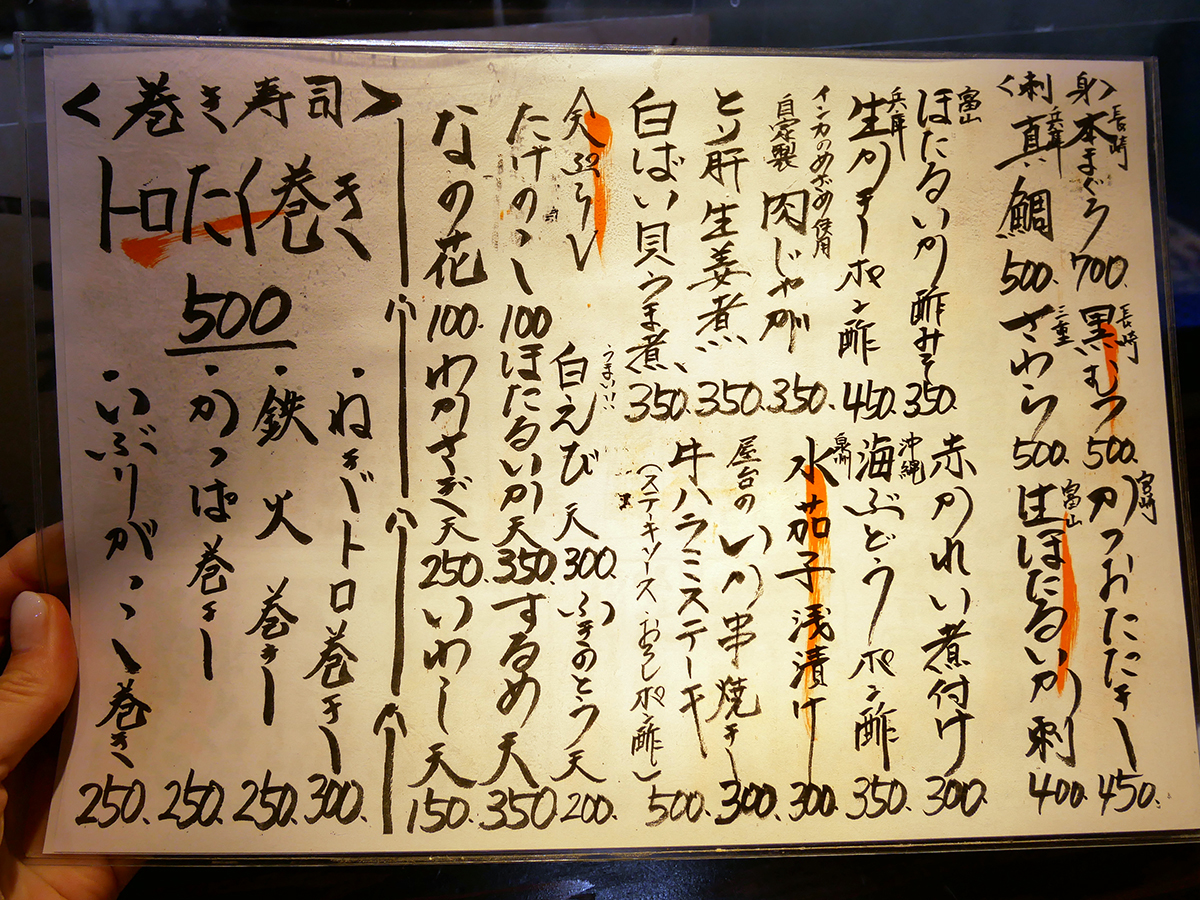 〈刺身〉
長崎 本まぐろ 700. 長崎 黒むつ 500. 宮崎 かつおたたき 450.
兵庫 真鯛 500. 三重 さわら 500. 富山 生ほたるいか刺 400.
富山 ほたるいか酢みそ 350. 赤かれい煮付け 300.
兵庫 生かきポン酢 450. 沖縄 海ぶどうポン酢 350.
インカのめざめ使用
自家製 肉じゃが 350. 泉州 水茄子浅漬け 300.
とり肝生姜煮 350. 屋台のいか串焼き 300.
白ばい貝うま煮 350. 牛ハラミステーキ 500.
(ステーキソース おろしポン酢)
〈天ぷら〉 うまい!! 白えび天 300. ふきのとう天 200.
たけのこ 100 ほたるいか天 350. するめ天 350.
なの花 100. わかさぎ天 250. いわし天 150.
〈巻き寿司〉
トロたく巻き
500
・ねぎトロ巻き 300.
・鉄火巻き 250.
・かっぱ巻き 250.
・いぶりがっこ巻き 250.